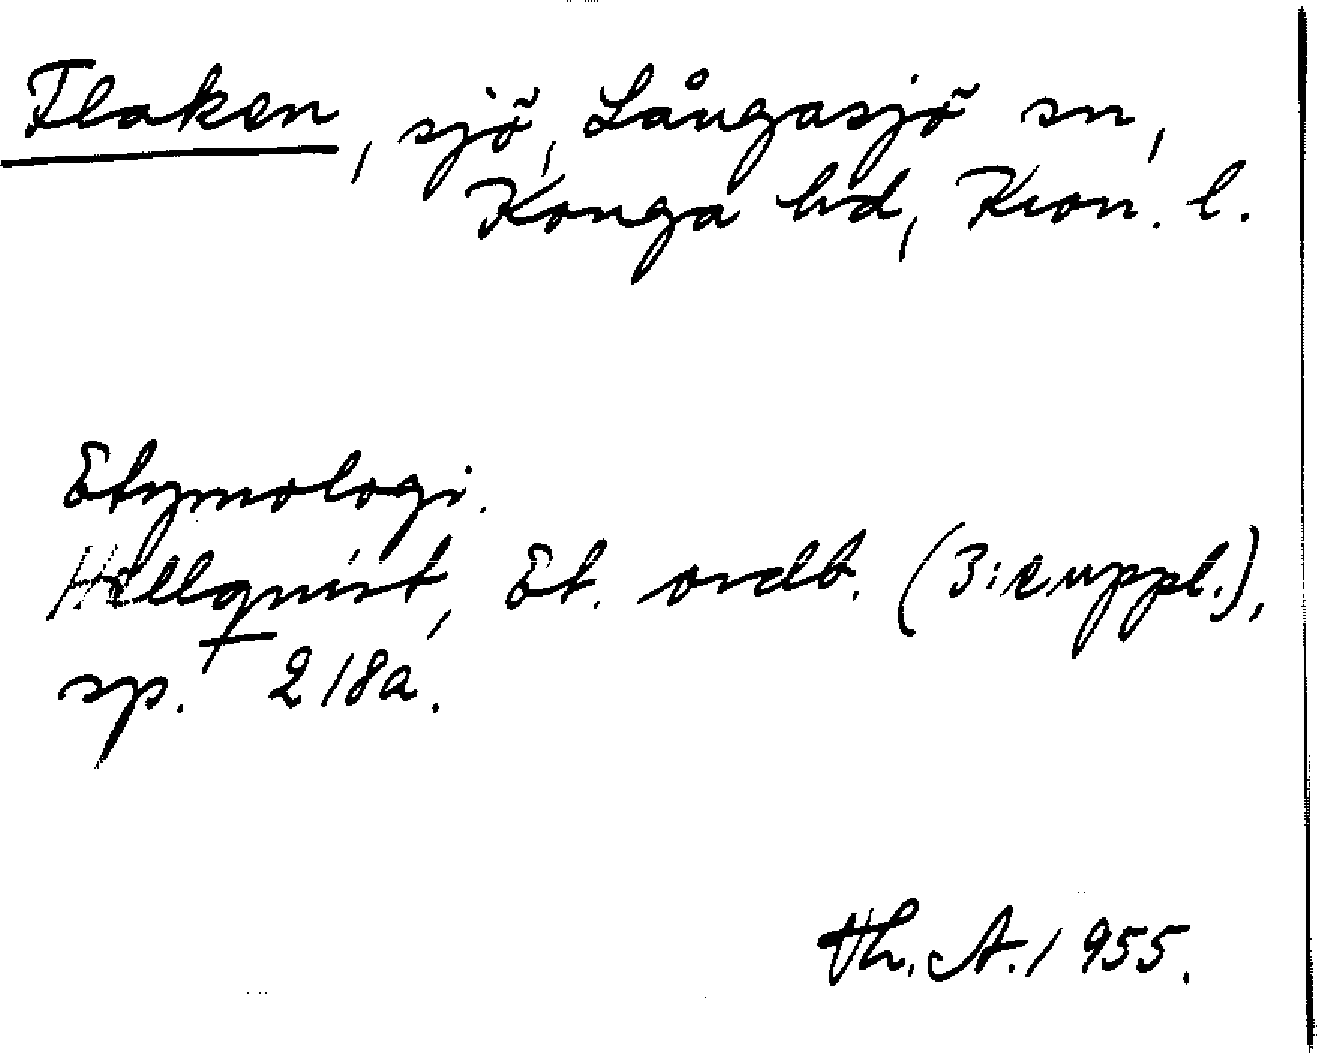 Flaken, sjö, Långasjö sn,
Konga hd, Kron. l.
Etymologi.
Hellquist, Et. ordb. (3:e uppl.),
sp. 218a.
Th. A. 1955.